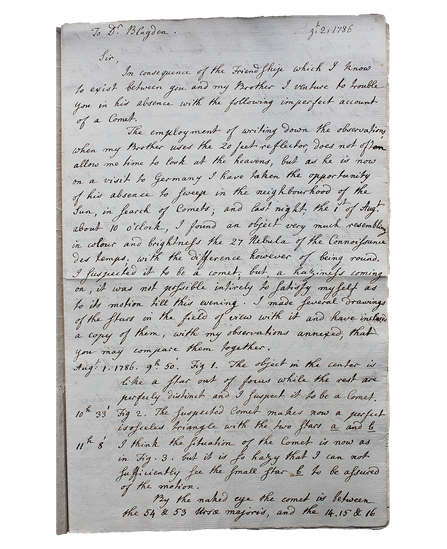 To Dr Blagden. 2, 1786
Sir,
In consequence of the Friendship which I know
to exist between you and my Brother I venture to trouble
you in his absence with the following imperfect account
of a Comet.
The employment of writing down the observations,
when my Brother uses the 20 feet reflector, does not often
allow me time to look at the heavens, but as he is now
on a visit to Germany I have taken the opportunity
of his absence to sweep in the neighbourhood of the
Sun, in search of Comets; and last night, the 1st of Augt
about 10 o'clock, I found an object very much resembling
in colour and brightness the 27 Nebula of the Connoissance
des temps. with the difference however of being round.
I suspected it to be a comet; but a haziness coming
on, it was not possible intirely to satisfy myself as
to its motion till this evening. I made several drawings
of the stars in the field of view with it and have inclosed
a copy of them, with my observations annexed, that
you may compare them together.
Augt 1. 1786. 9h 50. Fig 1. The object in the center is
like a star out of focus while the rest are
perfectly distinct and I suspect it to be a Comet.
10h 33' Fig 2. The suspected Comet makes now a perfect
isosceles triangle with the two Stars a and b
11h 8' I think the situation of the Comet is now as
in Fig. 3. but it is so hazy that I can not
sufficiently see the small star b to be assured
of the motion.
By the naked eye the comet is between
the 54 & 53 Ursæ majoris, and the 14. 15 & 16